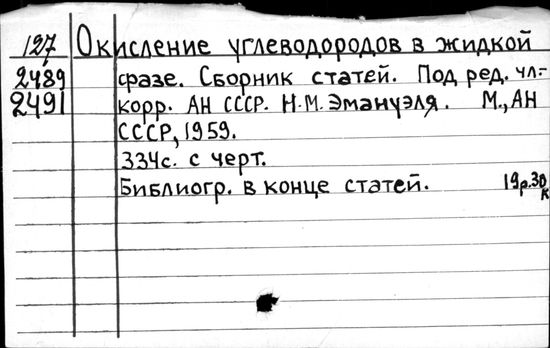 127 Окисление углеводородов в жидкой
2489 фазе. Сборник статей. Под ред. чл.-
2491 корр. АН СССР. Н.М. Эмануэля. М., АН
СССР, 1959.
334с. с черт.
Библиогр. в конце статей. 19р.30к